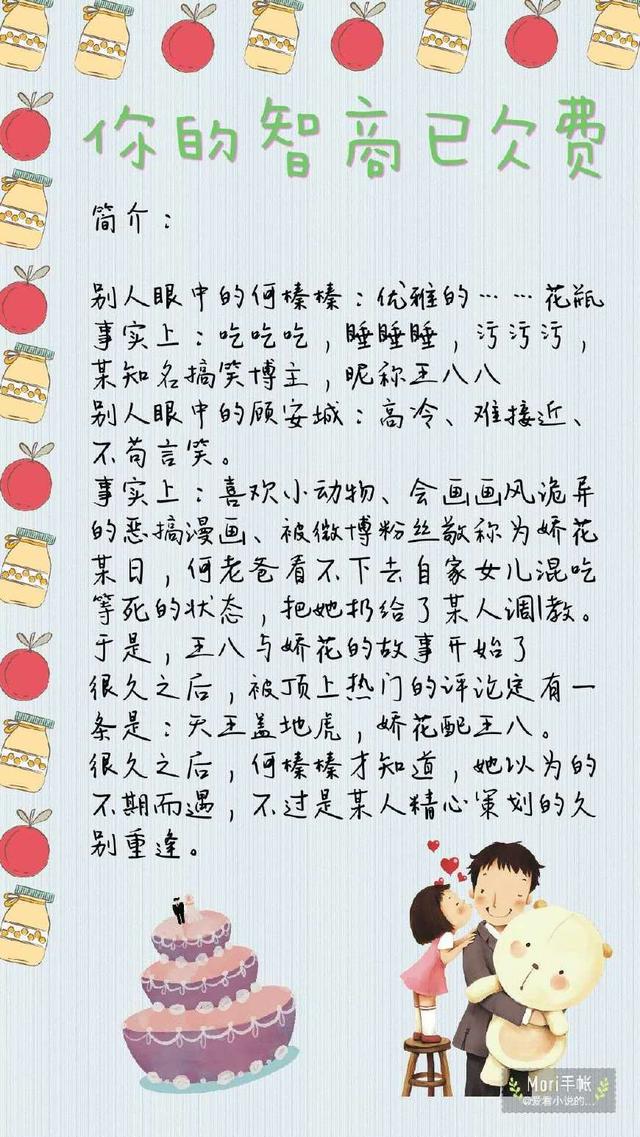 你的智商已欠费
简介：
别人眼中的何榛榛：优雅的……花瓶
事实上：吃吃吃，睡睡睡，污污污，
某知名搞笑博主，昵称王八八
别人眼中的顾安城：高冷、难接近、
不苟言笑。
事实上：喜欢小动物、会画画风诡异
的恶搞漫画、被微博粉丝敬称为娇花
某日，何老爸看不下去自家女儿混吃
等死的状态，把她扔给了某人调教。
于是，王八与娇花的故事开始了
很久之后，被顶上热门的评论定有一
条是：天王盖地虎，娇花配王八。
很久之后，何榛榛才知道，她以为的
不期而遇，不过是某人精心策划的久
别重逢。
Mori手帐
@爱看小说的...